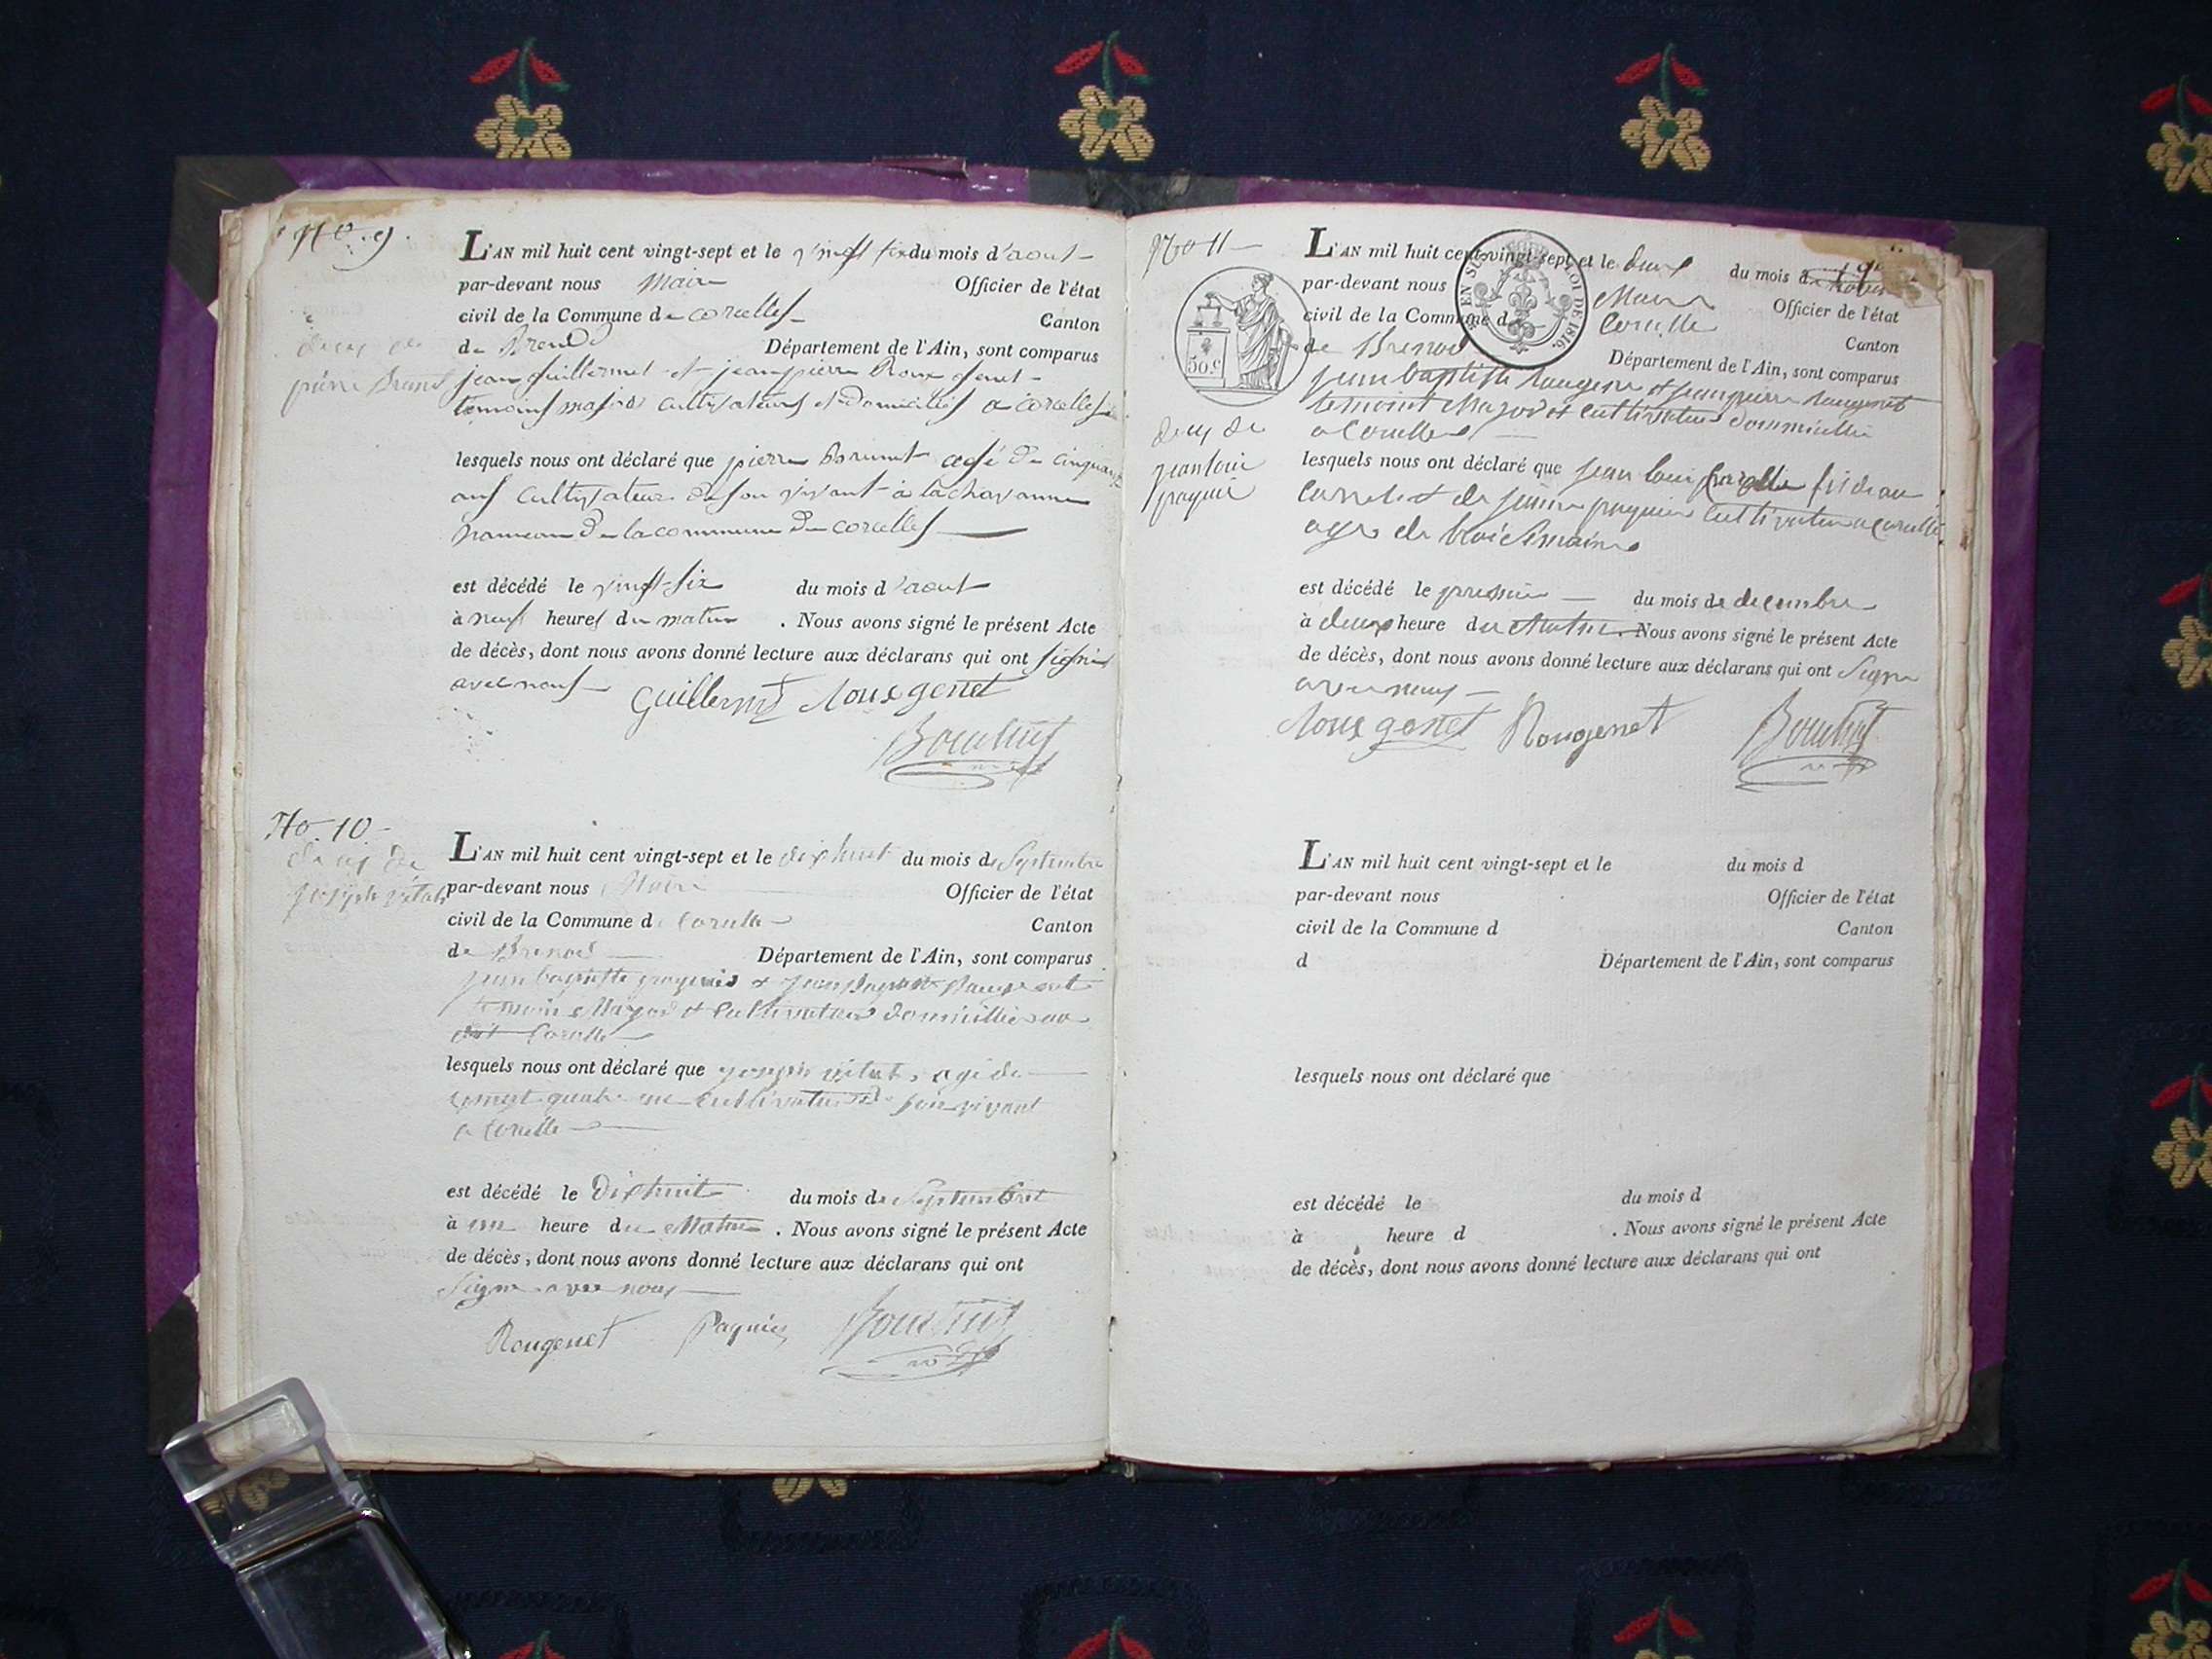 No. 9.
L'AN mil huit cent vingt-sept et le vingt six du mois d'aout
par-devant nous Maire Officier de l'état
civil de la Commune de corcelles Canton
de Brenod Département de l'Ain, sont comparus
deces de
pierre Brunet
jean guillermet et jean pierre Roux genet
temoins majors cultivateurs et domiciliés a corcelles
lesquels nous ont déclaré que pierre Brunet agé de cinquante
ans cultivateur de son vivant à la chavanne
hameau de la commune de corcelles
est décédé le vingt-six du mois d'aout
à neuf heures du matin . Nous avons signé le présent Acte
de décès, dont nous avons donné lecture aux déclarans qui ont signés
avec nous
Guillermet Rouxgenet
No. 10
deces de
joseph vitat
L'AN mil huit cent vingt-sept et le dixhuit du mois de Septembre
par-devant nous Maire Officier de l'état
civil de la Commune de Corcelle Canton
de Brenod Département de l'Ain, sont comparus
temoins Major et Cultivateur domicillié au
dit Corcelle
lesquels nous ont déclaré que joseph vitat, agé de
quatre Cultivateur de son vivant
a Corcelle
est décédé le Dixhuit du mois de Septembre
à une heure du Matin . Nous avons signé le présent Acte
de décès, dont nous avons donné lecture aux déclarans qui ont
Signe avec nous
Rougenet Paquier
No 11
L'AN mil huit cent vingt-sept et le deux du mois d
par-devant nous Maire Officier de l'état
civil de la Commune de Corcelle Canton
de Brenod Département de l'Ain, sont comparus
EN SUS LOI DE 1816.
50.c
jean baptiste Rougenet et jean pierre Rougenet
temoint Major et Cultivateur dommicillié
a Corcelle
deces de
jean loui
paquier
lesquels nous ont déclaré que jean loui
et de paquier Cultivateur a Corcelle
agé de troi Semaine
est décédé le premier du mois de decembre
à deux heure du Matin. Nous avons signé le présent Acte
de décès, dont nous avons donné lecture aux déclarans qui ont Signe
avec nous
Rouxgenet Rougenet
L'AN mil huit cent vingt-sept et le du mois d
par-devant nous Officier de l'état
civil de la Commune d Canton
d Département de l'Ain, sont comparus
lesquels nous ont déclaré que
est décédé le du mois d
à heure d . Nous avons signé le présent Acte
de décès, dont nous avons donné lecture aux déclarans qui ont